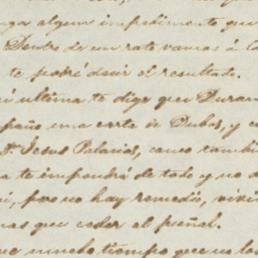 nga algun impedimento que
Dentro de un rato vamos á C
te podré decir el resultado.
i ultima te dige que Duran
paño una carta de Dubos, y c
Dn Jesus Palacios, cauco tambi
a te impondrá de todo y no d
i, pero no hay remedio, vivi
mas que ceder al puñal.
ue mucho tiempo que no